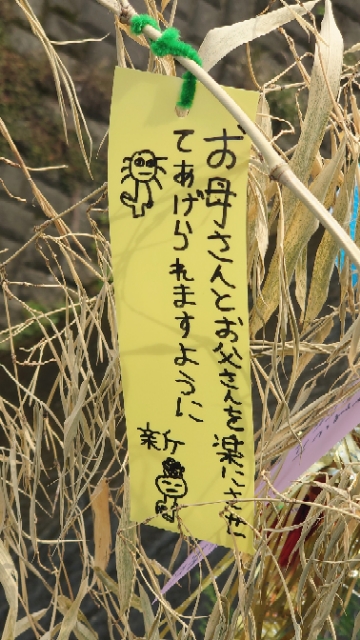 お母さんとお父さんを楽にさせ
てあげられますように
新